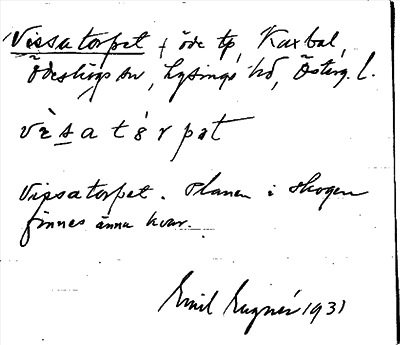 Vissatorpet f öde tp, Kaxbal,
Ödeshögs sn, Lysings hd, Österg. l.
vìsatórpat
Vissatorpet. Planen i skogen
finnes ännu kvar.
Emil 1931